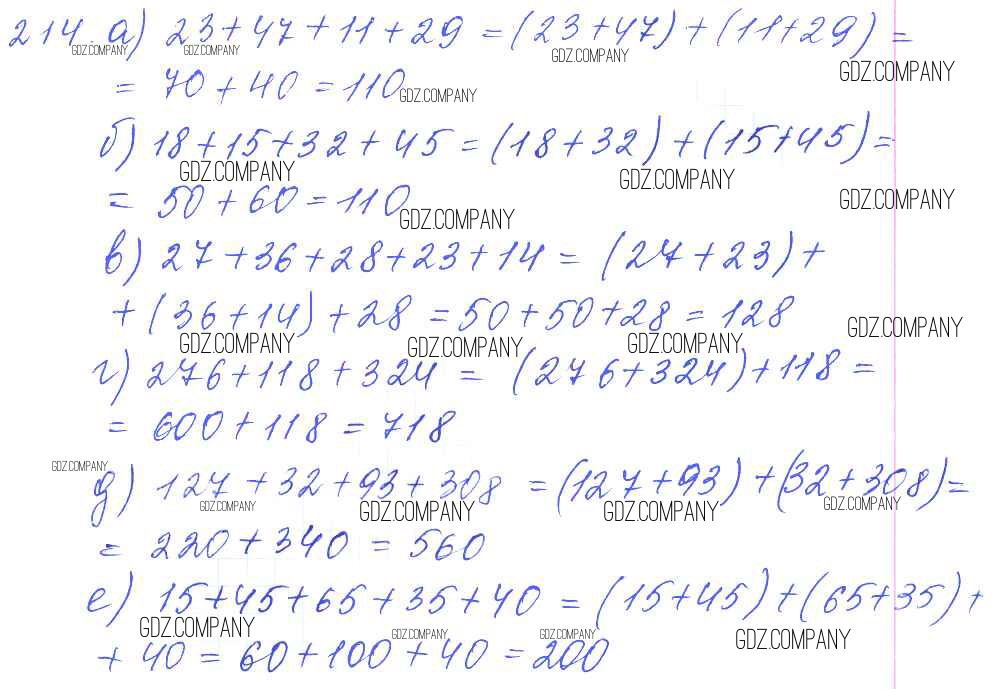 214. а) 23+47+11+29 = (23+47)+(11+29) =
GDZ.COMPANY GDZ.COMPANY GDZ.COMPANY GDZ.COMPANY
= 70+40 = 110 GDZ.COMPANY
б) 18+15+32+45 = (18+32)+(15+45) =
GDZ.COMPANY GDZ.COMPANY
= 50+60 = 110 GDZ.COMPANY GDZ.COMPANY
в) 27+36+28+23+14 = (27+23)+
+(36+14)+28 = 50+50+28 = 128 GDZ.COMPANY
GDZ.COMPANY GDZ.COMPANY GDZ.COMPANY
г) 276+118+324 = (276+324)+118 =
= 600+118 = 718
GDZ.COMPANY
д) 127+32+93+308 = (127+93)+(32+308) =
GDZ.COMPANY GDZ.COMPANY GDZ.COMPANY GDZ.COMPANY
= 220+340 = 560
е) 15+45+65+35+40 = (15+45)+(65+35)+
GDZ.COMPANY GDZ.COMPANY GDZ.COMPANY GDZ.COMPANY
+40 = 60+100+40 = 200